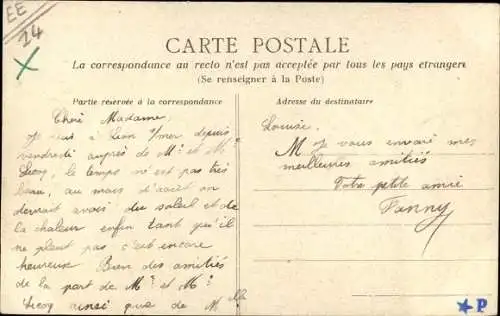 EE
14
CARTE POSTALE
La correspondance au recto n'est pas acceptée par tous les pays étrangers
(Se renseigner à la Poste)
Partie réservée à la correspondance
Chère Madame,
je suis à Lion s/mer depuis
vendredi auprès de Mr et Me
le temps n'est pas très
beau, au mois d'août on
devrait avoir du soleil et de
la chaleur enfin tant qu'il
ne pleut pas c'est encore
heureux Bien des amitiés
de la part de Mr et Me
ainsi que de Melle
Adresse du destinataire
Louise.
Je vous envoie mes
meilleures amitiés
Votre petite amie
Fanny
P